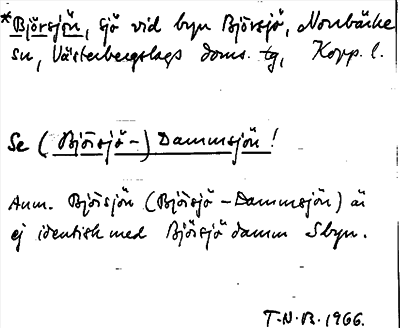 *Björsjön, sjö vid byn Björsjö, Norrbärke
sn, Västerbergslags doms. tg, Kopp. l.
Se (Björsjö-) Dammsjön!
Anm. Björsjön (Björsjö-Dammsjön) är
ej identisk med Björsjö damm Sbyn.
T.N.B. 1966.